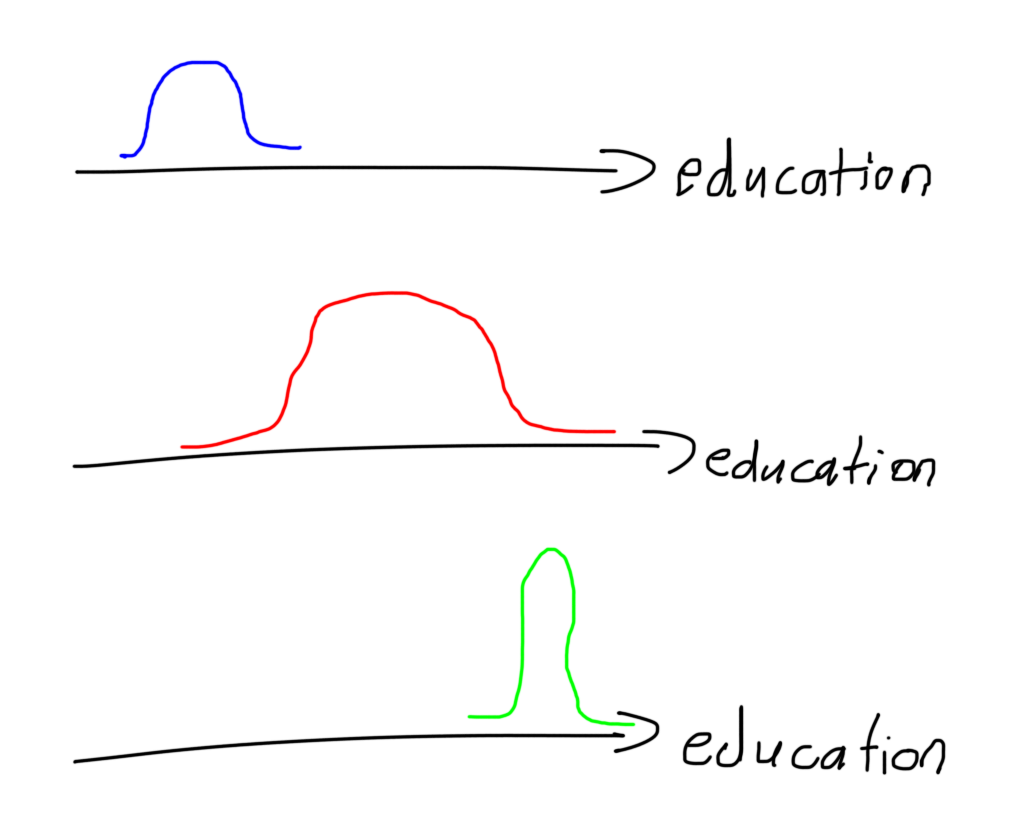 education
education
education